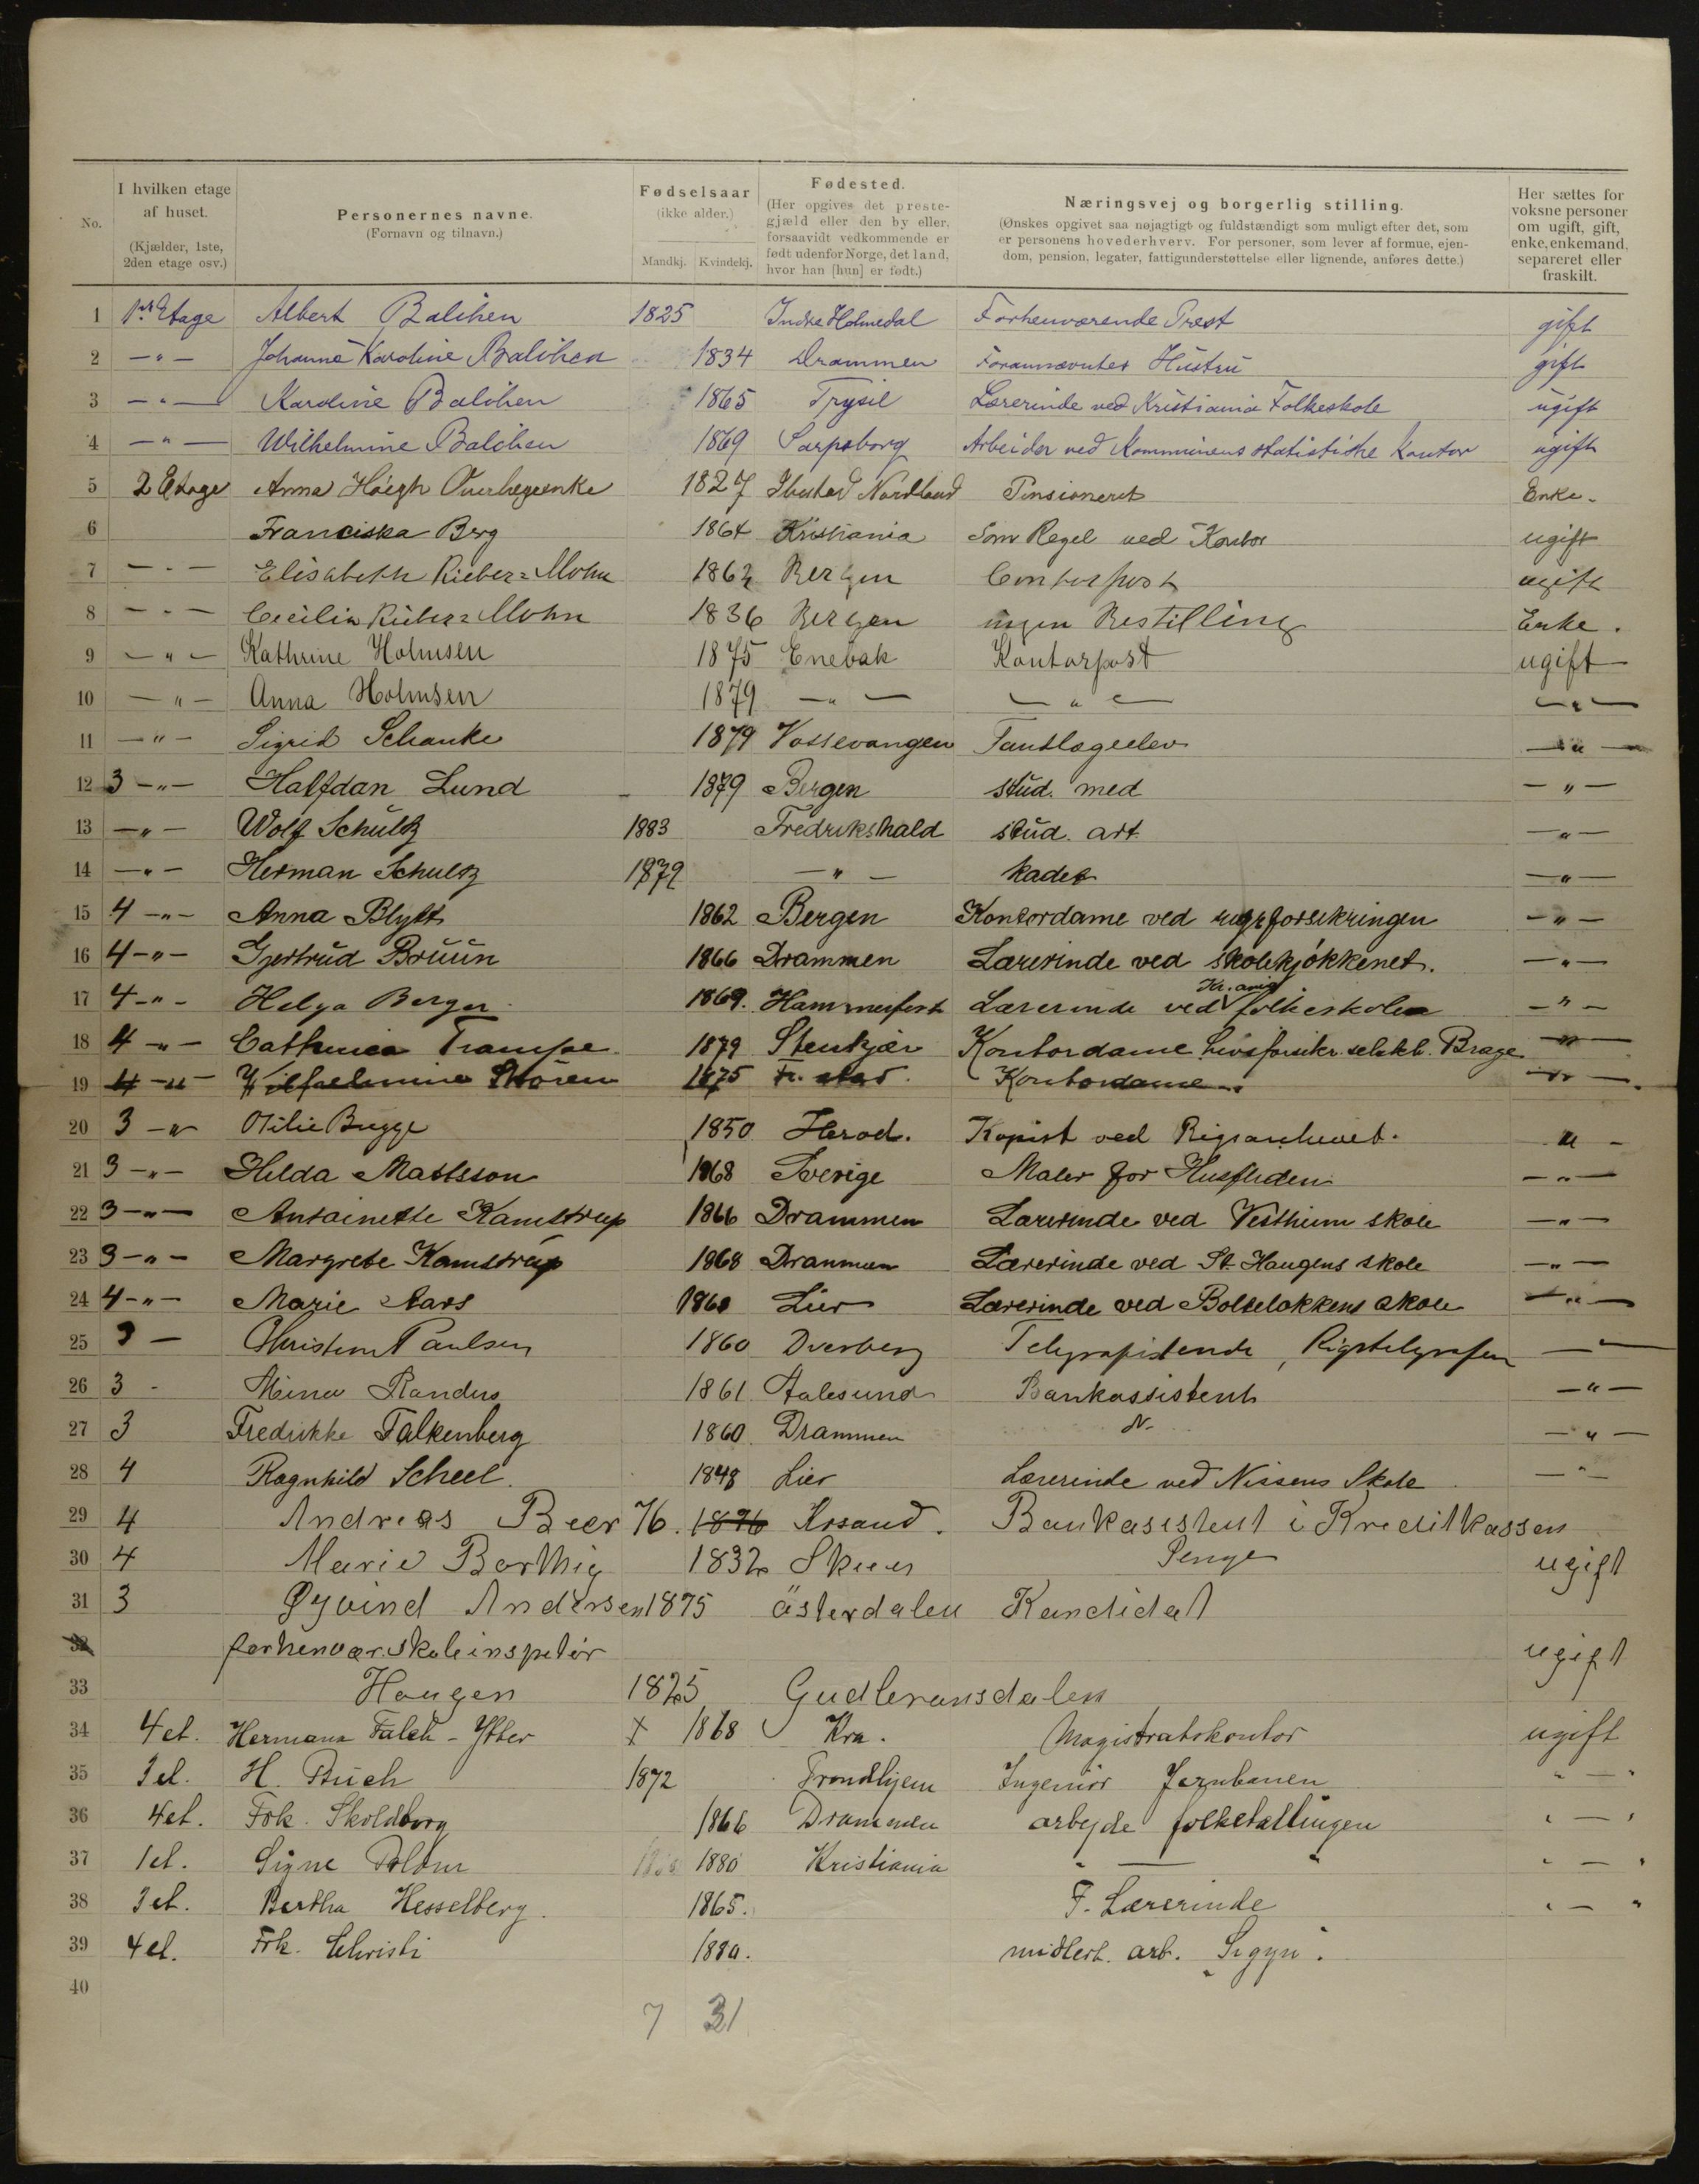 No.
I hvilken etage af huset.
(Kjælder, 1ste, 2den etage osv.)
Personernes navne.
(Fornavn og tilnavn.)
Fødselsaar
(ikke alder.)
Mandkj. Kvindekj.
Fødested.
(Her opgives det prestegjæld eller den by eller, forsaavidt vedkommende er født udenfor Norge, det land, hvor han [hun] er født.)
Næringsvej og borgerlig stilling.
(Ønskes opgivet saa nøjagtigt og fuldstændigt som muligt efter det, som er personens hovederhverv. For personer, som lever af formue, ejendom, pension, legater, fattigunderstøttelse eller lignende, anføres dette.)
Her sættes for voksne personer om ugift, gift, enke, enkemand, separeret eller fraskilt.
1 1ste Etage Albert Balchen 1825 Indre Holmedal Forhenværende Prest gift
2 -"- Johanne Karoline Balchen 1834 Drammen Forannævntes Hustru gift
3 -"- Karoline Balchen 1865 Trysil Lærerinde ved Kristiania Folkeskole ugift
4 -"- Wilhelmine Balchen 1869 Sarpsborg Arbeider ved Kommunens statistiske Kontor ugift
5 2 Etage Anna Höegh Overlægeenke 1827 Ibestad Nordland Pensioneret Enke.
6 Franciska Berg 1864 Kristiania Som Regel ved Kontor ugift
7 -"- Elisabeth Rieber=Mohn 1862 Bergen Contorpost ugift
8 -"- Cecilia Rieber=Mohn 1836 Bergen ingen Bestilling Enke.
9 -"- Kathrine Holmsen 1875 Enebak Kontorpost ugift
10 -"- Anna Holmsen 1879 -"- -"- -"-
11 -"- Sigrid Schanke 1879 Vossevangen Tandlægeelev -"-
12 3 -"- Halfdan Lund 1879 Bergen stud. med -"-
13 -"- Wolf Schultz 1883 Fredrikshald stud. art. -"-
14 -"- Herman Schultz 1879 -"- kadet -"-
15 4 -"- Anna Blytt 1862 Bergen Kontordame ved rigsforsikringen -"-
16 4 -"- Gjertrud Bruun 1866 Drammen Lærerinde ved skolekjøkkenet. -"-
17 4 -"- Helga Berger 1869. Hammerfest Lærerinde ved Kr.ania folkeskoler -"-
18 4 -"- Cathrine Trampe 1879 Stenkjær Kontordame Livsforsikr. selskb. Brage -"-
19 4 -"- Wilhelmine Støren 1875 Fr. stad. Kontordame. -"-
20 3 -"- Otilie Bugge 1850 Herød. Kopist ved Rigsarchivet. -"-
21 3 -"- Hilda Mattsson 1868 Sverige Maler for Husfliden -"-
22 3 -"- Antoinette Kamstrup 1866 Drammen Lærerinde ved Vestheim skole -"-
23 3 -"- Margrete Kamstrup 1868 Drammen Lærerinde ved St. Haugens skole -"-
24 4 -"- Marie Aars 1860 Lier Lærerinde ved Bolteløkkens skole -"-
25 3 - Christine Paulsen 1860 Dverberg Telegrafistinde, Rigstelegrafen -"-
26 3 - Mina Randers 1861 Aalesund Bankassistent -"-
27 3 Fredrikke Falkenberg 1860 Drammen -"-
28 4 Ragnhild Scheel. 1848 Lier Lærerinde ved Nissens Skole -"-
29 4 Andreas Beer 76. 1876 Krsand. Bankasistent i Kreditkassen
30 4 Marie Borthig 1832 Skien Penge ugift
31 3 Øyvind Andersen 1875 österdalen Kandidat
32 forhenvær. Skoleinspetör ugift
33 Haugen 1825 Gudleransdalen
34 4 et. Hermana Falch-Ytter X 1868 Kra. Magistratskontor ugift
35 3 et. H. Buch 1872 Trondhjem Ingeniör Jernbanen " — "
36 4 et. Frk. Skoldborg 1866 Drammen arbejde folketællingen " — "
37 1 et. Signe Blom 1880 Kristiania " — " " — "
38 3 et. Bertha Hesselberg. 1865. F. Lærerinde " — "
39 4 et. Frk. Christi 1880. midlert. arb. "Sigyn".
40
7 31